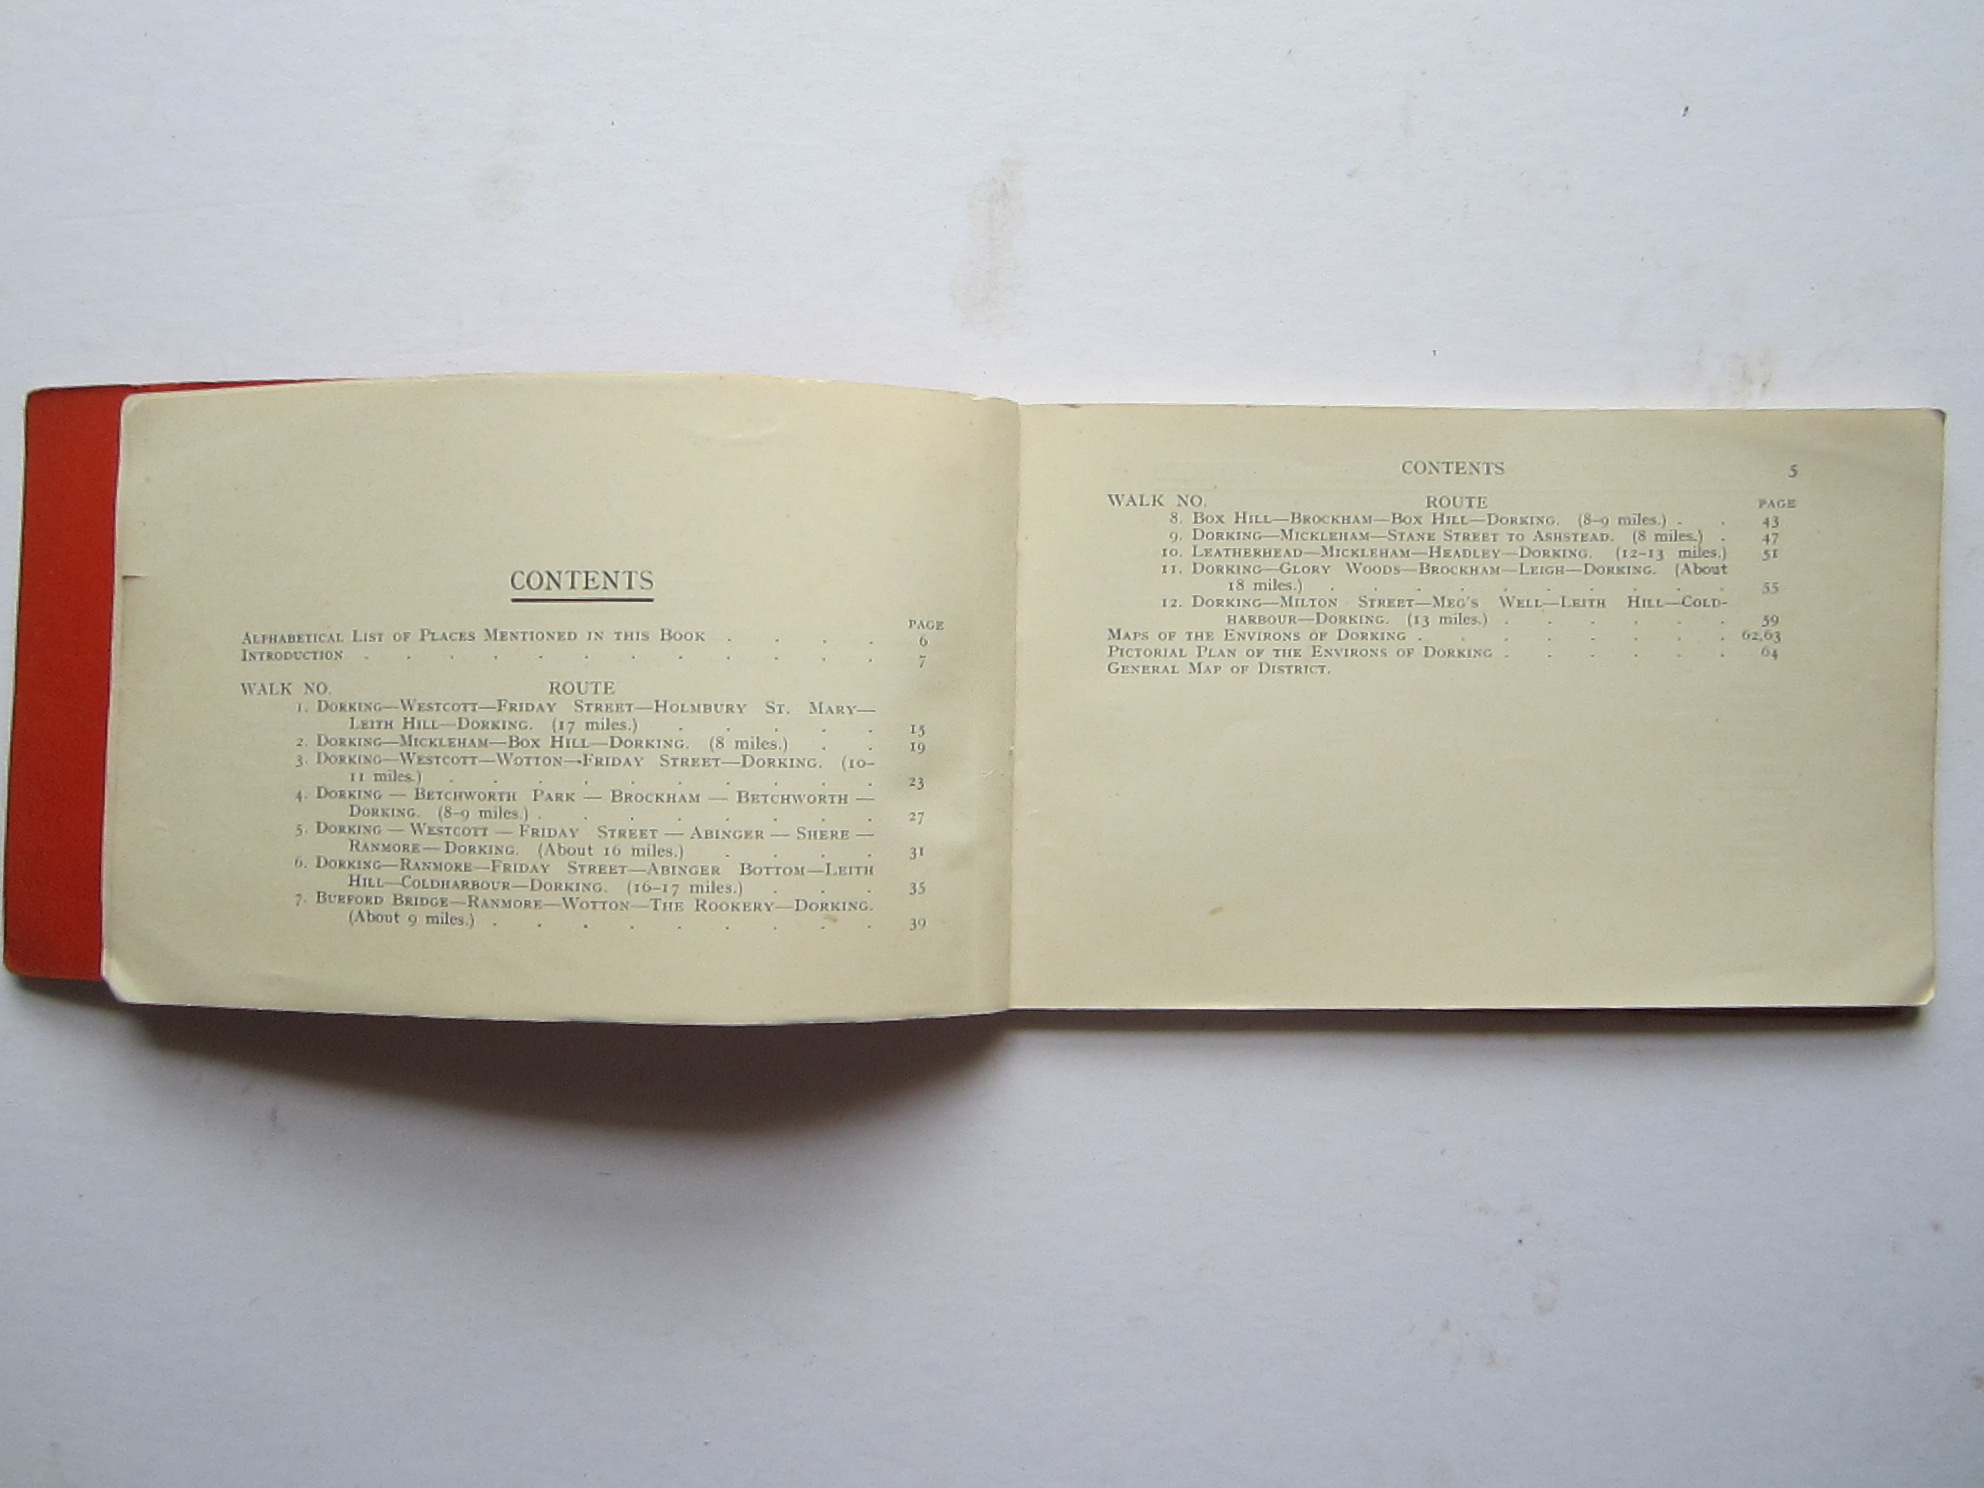 CONTENTS
PAGE
Alphabetical List of Places Mentioned in this Book . . . . 6
Introduction . . . . . . . . . . . . 7
WALK NO. ROUTE
1. Dorking—Westcott—Friday Street—Holmbury St. Mary—
Leith Hill—Dorking. (17 miles.) . . . . . 15
2. Dorking—Mickleham—Box Hill—Dorking. (8 miles.) . . 19
3. Dorking—Westcott—Wotton—Friday Street—Dorking. (10–
11 miles.) . . . . . . . . . . 23
4. Dorking — Betchworth Park — Brockham — Betchworth —
Dorking. (8–9 miles.) . . . . . . . . 27
5. Dorking — Westcott — Friday Street — Abinger — Shere —
Ranmore—Dorking. (About 16 miles.) . . . . 31
6. Dorking—Ranmore—Friday Street—Abinger Bottom—Leith
Hill—Coldharbour—Dorking. (16–17 miles.) . . . 35
7. Burford Bridge—Ranmore—Wotton—The Rookery—Dorking.
(About 9 miles.) . . . . . . . . . 39
CONTENTS 5
WALK NO. ROUTE PAGE
8. Box Hill—Brockham—Box Hill—Dorking. (8–9 miles.) . . 43
9. Dorking—Mickleham—Stane Street to Ashstead. (8 miles.) . 47
10. Leatherhead—Mickleham—Headley—Dorking. (12–13 miles.) 51
11. Dorking—Glory Woods—Brockham—Leigh—Dorking. (About
18 miles.) . . . . . . . . . . 55
12. Dorking—Milton Street—Meg's Well—Leith Hill—Cold-
harbour—Dorking. (13 miles.) . . . . . . 59
Maps of the Environs of Dorking . . . . . . . . 62,63
Pictorial Plan of the Environs of Dorking . . . . . . 64
General Map of District.